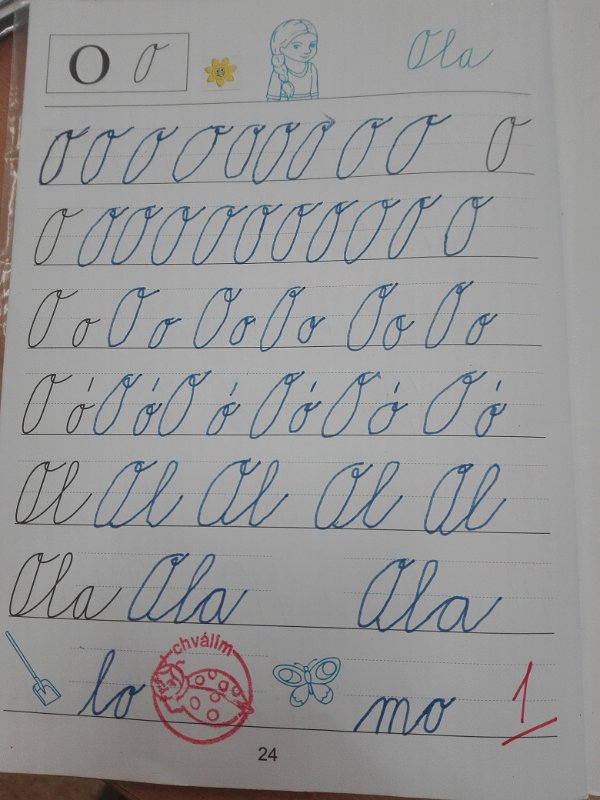 O O Ola
O O O O O O O O O O
O O O O O O O O O O O
O o O o O o O o O o O o
O ó O ó O ó O ó O ó O ó
Ol Ol Ol Ol Ol
Ola Ola Ola
lo chválím mo 1
24